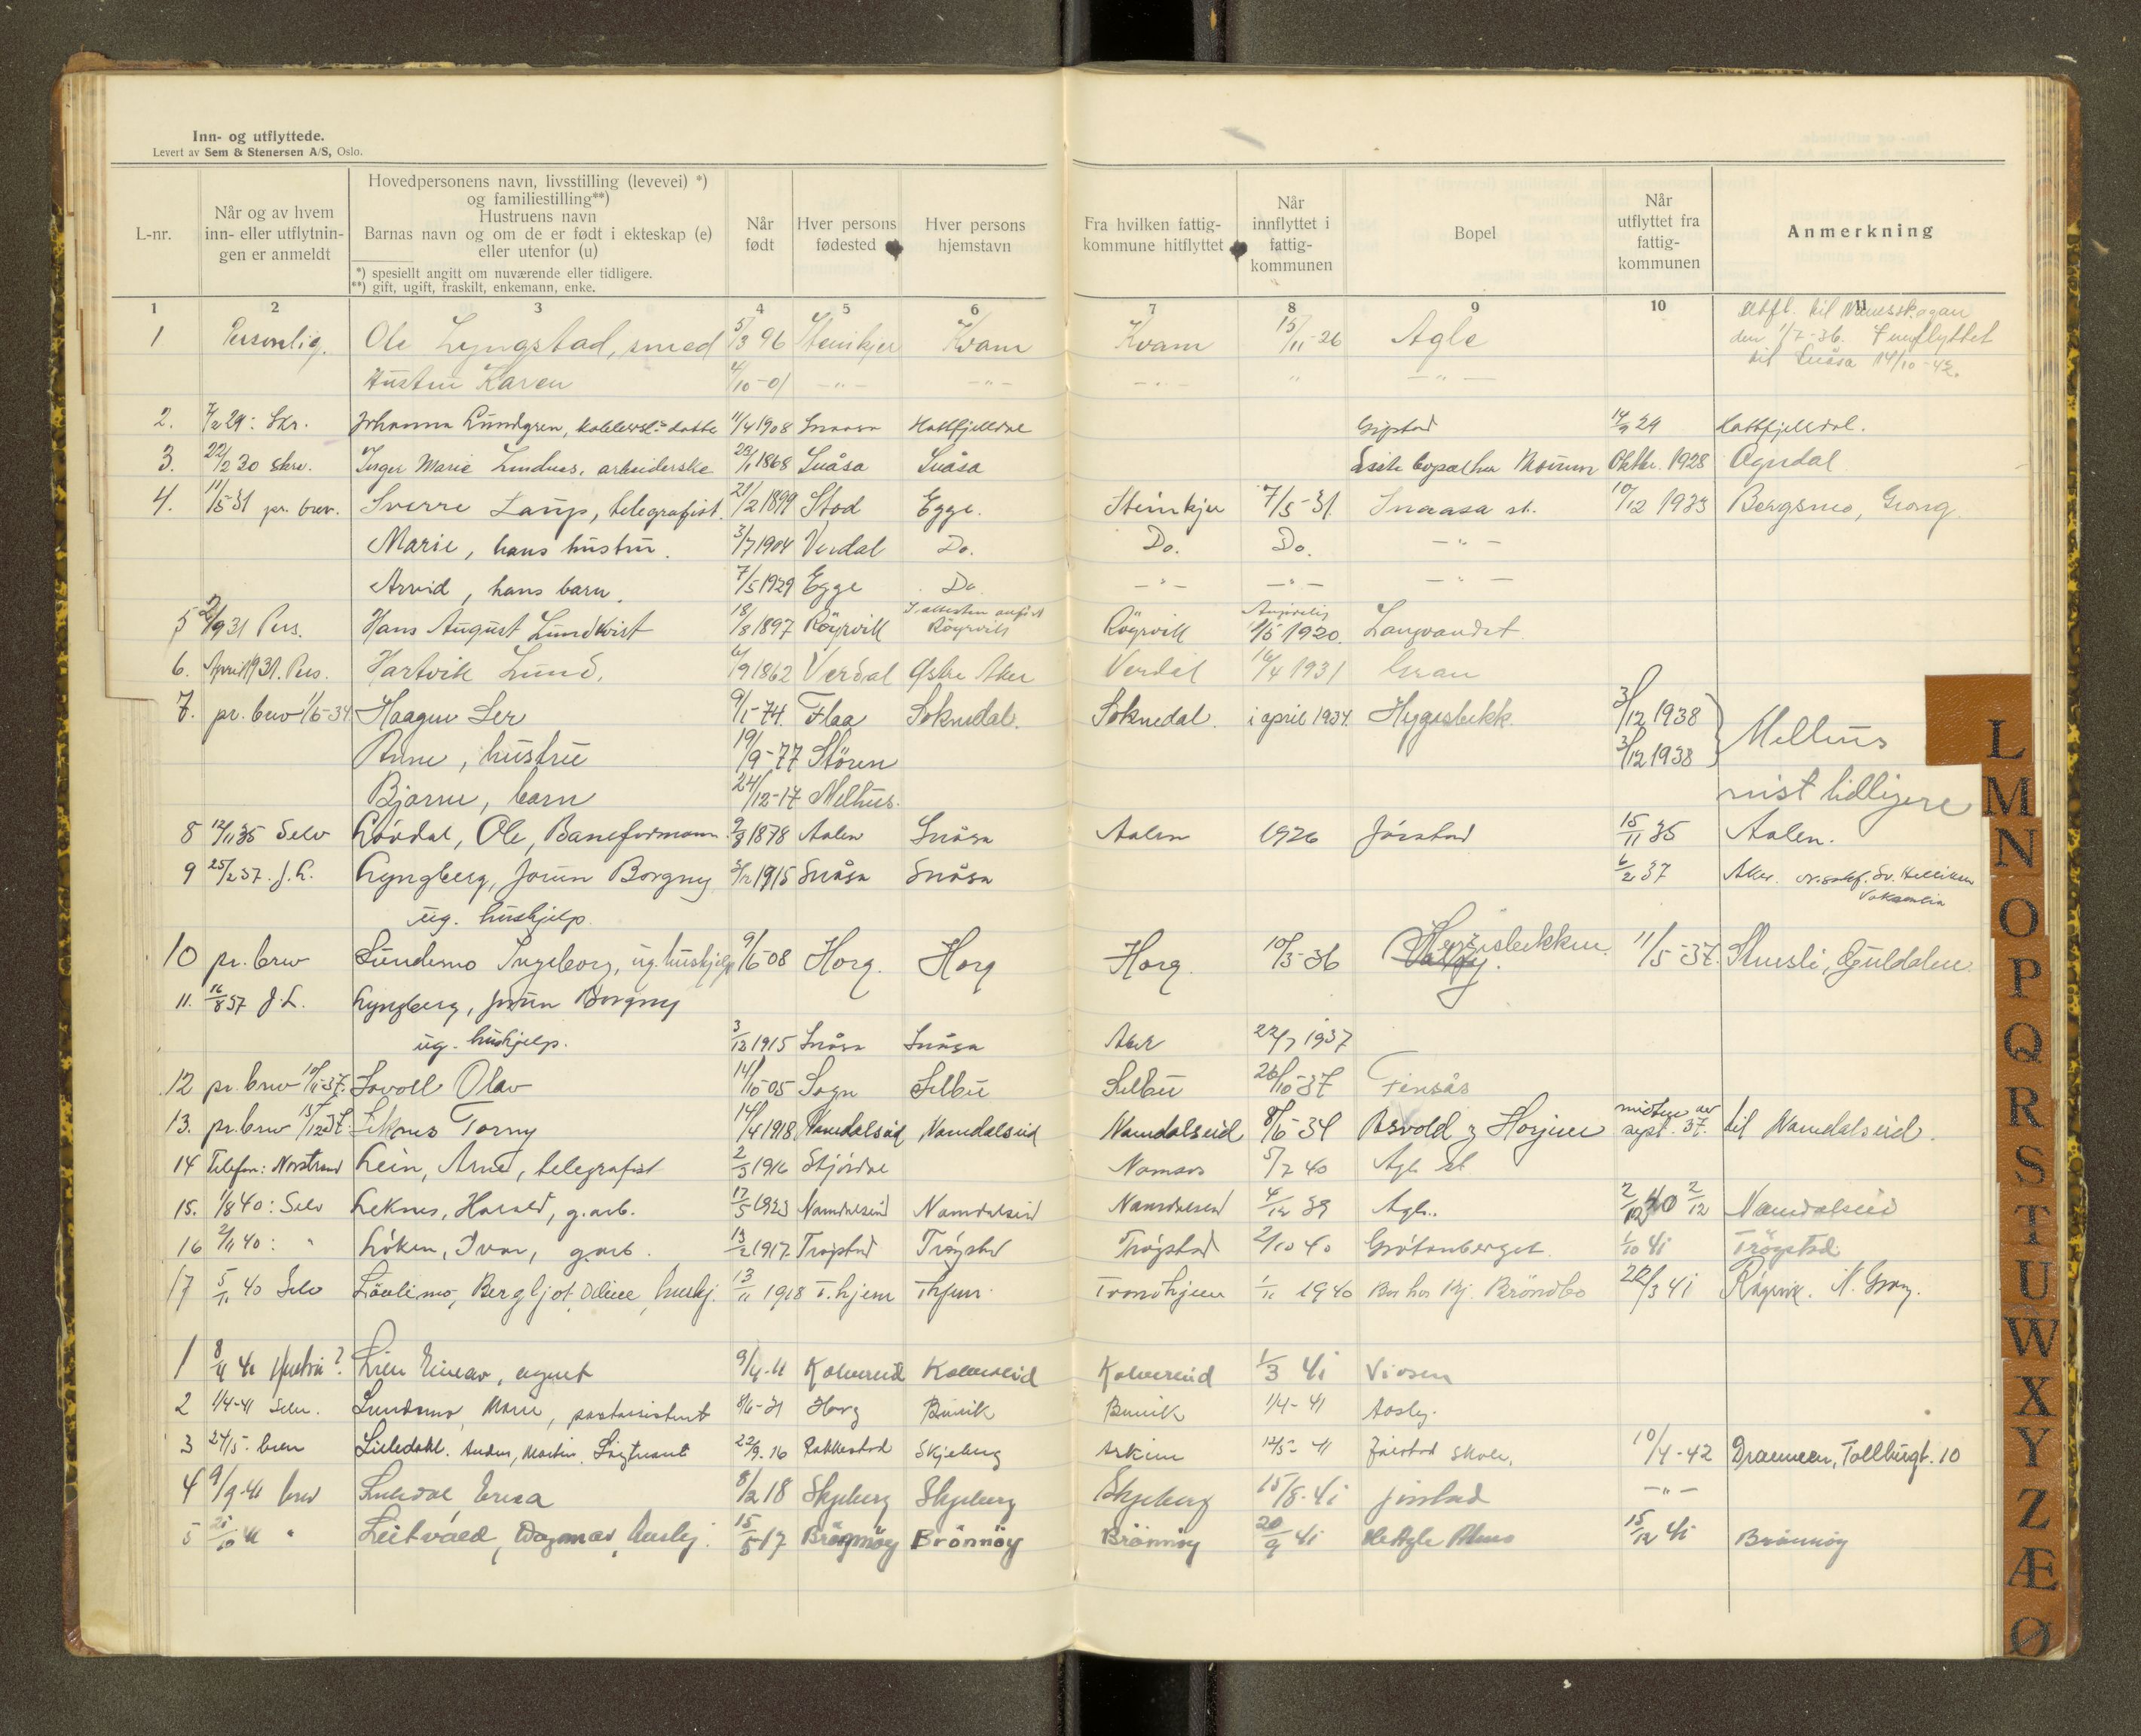 Inn- og utflyttede.
Levert av Sem & Stenersen A/S, Oslo.
L-nr.
Når og av hvem inn- eller utflytnin-gen er anmeldt
Hovedpersonens navn, livsstilling (levevei) *) og familiestilling**)
Hustruens navn
Barnas navn og om de er født i ekteskap (e) eller utenfor (u)
*) spesiellt angitt om nuværende eller tidligere.
**) gift, ugift, fraskilt, enkemann, enke.
Når født
Hver persons fødested
Hver persons hjemstavn
Fra hvilken fattig-kommune hitflyttet
Når innflyttet i fattig-kommunen
Bopel
Når utflyttet fra fattig-kommunen
Anmerkning
1 2 3 4 5 6 7 8 9 10 11
1 Personlig. Ole Lyngstad, smed 5/3 96 Steinkjer Kvam Kvam 15/11-26 Agle Utfl. til Namsskogan
den 1/7-36.
til Snåsa 14/10-42.
Hustru Karen 4/10-01 -"- -"- -"- " -"-
2. 7/2 29: Skr. Johanna Lundgren, datter 11/4 1908 Snaasa Hattfjelldal Gipstad 14/9 29 Hattfjelldal.
3. 22/2 30 skr. Inger Marie Lindnes, arbeiderske 23/1 1868 Snåsa Snåsa Sist bopæl hos Oktbr. 1928 Ogndal
4. 11/5-31 pr. brev. Sverre Laup, telegrafist. 21/2 1899 Stod Egge. Steinkjer 7/5-31. Snaasa st. 10/12 1933 Bergsmo, Grong
Marie, hans hustru. 3/7 1904 Verdal Do. Do. Do. -"-
Arvid, hans barn. 7/5 1929 Egge Do -"- -"- -"-
5 2/9 31 Pers. Hans August Lundkvist 18/8 1897 Röyrvik Röyrvik Röyrvik 1/5 1920. Langvandet
6. April 1931. Pers. Hartvik Lund, 6/9 1862 Verdal Østre Aker Verdal 16/4 1931 Gran
7. pr. brev 1/5-34 Haagen Ler 9/1-74. Flaa Soknedal. Soknedal. i april 1934. 3/12 1938 Melhus
Anne, hustru 19/9-77 Stören 3/12 1938
Bjarne, barn 24/12-17 Melhus. reist tidligere
8 12/11 35 Selv Lövdal, Ole, Baneformann. 9/3 1878 Aalen Snåsa Aalen 1926 Jörstad 15/11 35 Aalen.
9 25/2 37. J.L. Lyngberg, Jorun Borgny 3/12 1915 Snåsa Snåsa 6/2 37 Aker.
ug. hushjelp.
10 pr. brev Sundemo Ingeborg, ug. hushjelp 9/6-08 Horg. Horg Horg. 10/3-36 11/5-37. Guldalen.
11. 16/8 37 J.L. Lyngberg, Jorun Borgny
ug. hushjelp. 3/12 1915 Snåsa Snåsa Aker 22/7 1937
12 pr. brev 10/11-37. Lovoll Olav 14/10-05 Sogn Selbu Selbu 20/10-37 Finsås
13. pr. brev 13/12 37. Leknes Torny 14/4 1918 Namdalseid Namdalseid Namdalseid 8/6-34 midten av sept. 37. til Namdalseid.
14 Telefon: Lein, Arne, telegrafist 2/3 1916 Stjördal Namsos 5/2 40 Agle st.
15. 1/8 40: Selv Leknes, Harald, g. arb. 17/5 1923 Namdalseid Namdalseid Namdalseid 4/12 39 Agle. 2/12 40 2/12 Namdalseid
16 2/11 40: " Löken, Ivar, g. arb. 13/2 1917 Trögstad Trögstad Trögstad 2/10 40 Grötanberget. 1/10 41 Trögstad
17 5/11 40 Selv Bergljot Oline, hushj. 13/11 1918 T.hjem Thjem Trondhjem 1/11 1940 Bor hos Kj. Bröndbo 22/3 41 Röyrvik. N. Grong.
1 8/4 41 Hustru? Lien Einar, agent 9/4-11 Kolvereid Kolvereid Kolvereid 1/3 41 Viosen
2 1/4-41 Selv. Lundemo, Marie, postassistent 8/6-21 Horg Buvik Buvik 1/4-41
3 24/5. brev Liledahl. Anders, Martin. Lögtnant 22/9.16 Rakkestad Skjeberg Askim 12/5-41 Jörstad skole. 10/4-42 Drammen, Tollbugt. 10
4 9/9-41 brev Liledal Erna 8/2 18 Skjeberg Skjeberg Skjeberg 15/8-41 Jörstad -"-
5 21/10 41 " Dagmar, hushj. 15/5 17 Brönnöy Brönnöy Brönnöy 20/9 41 15/12 41 Brönnöy
L
M
N
O
P
Q
R
S
T
U
W
X
Y
Z
Æ
Ø